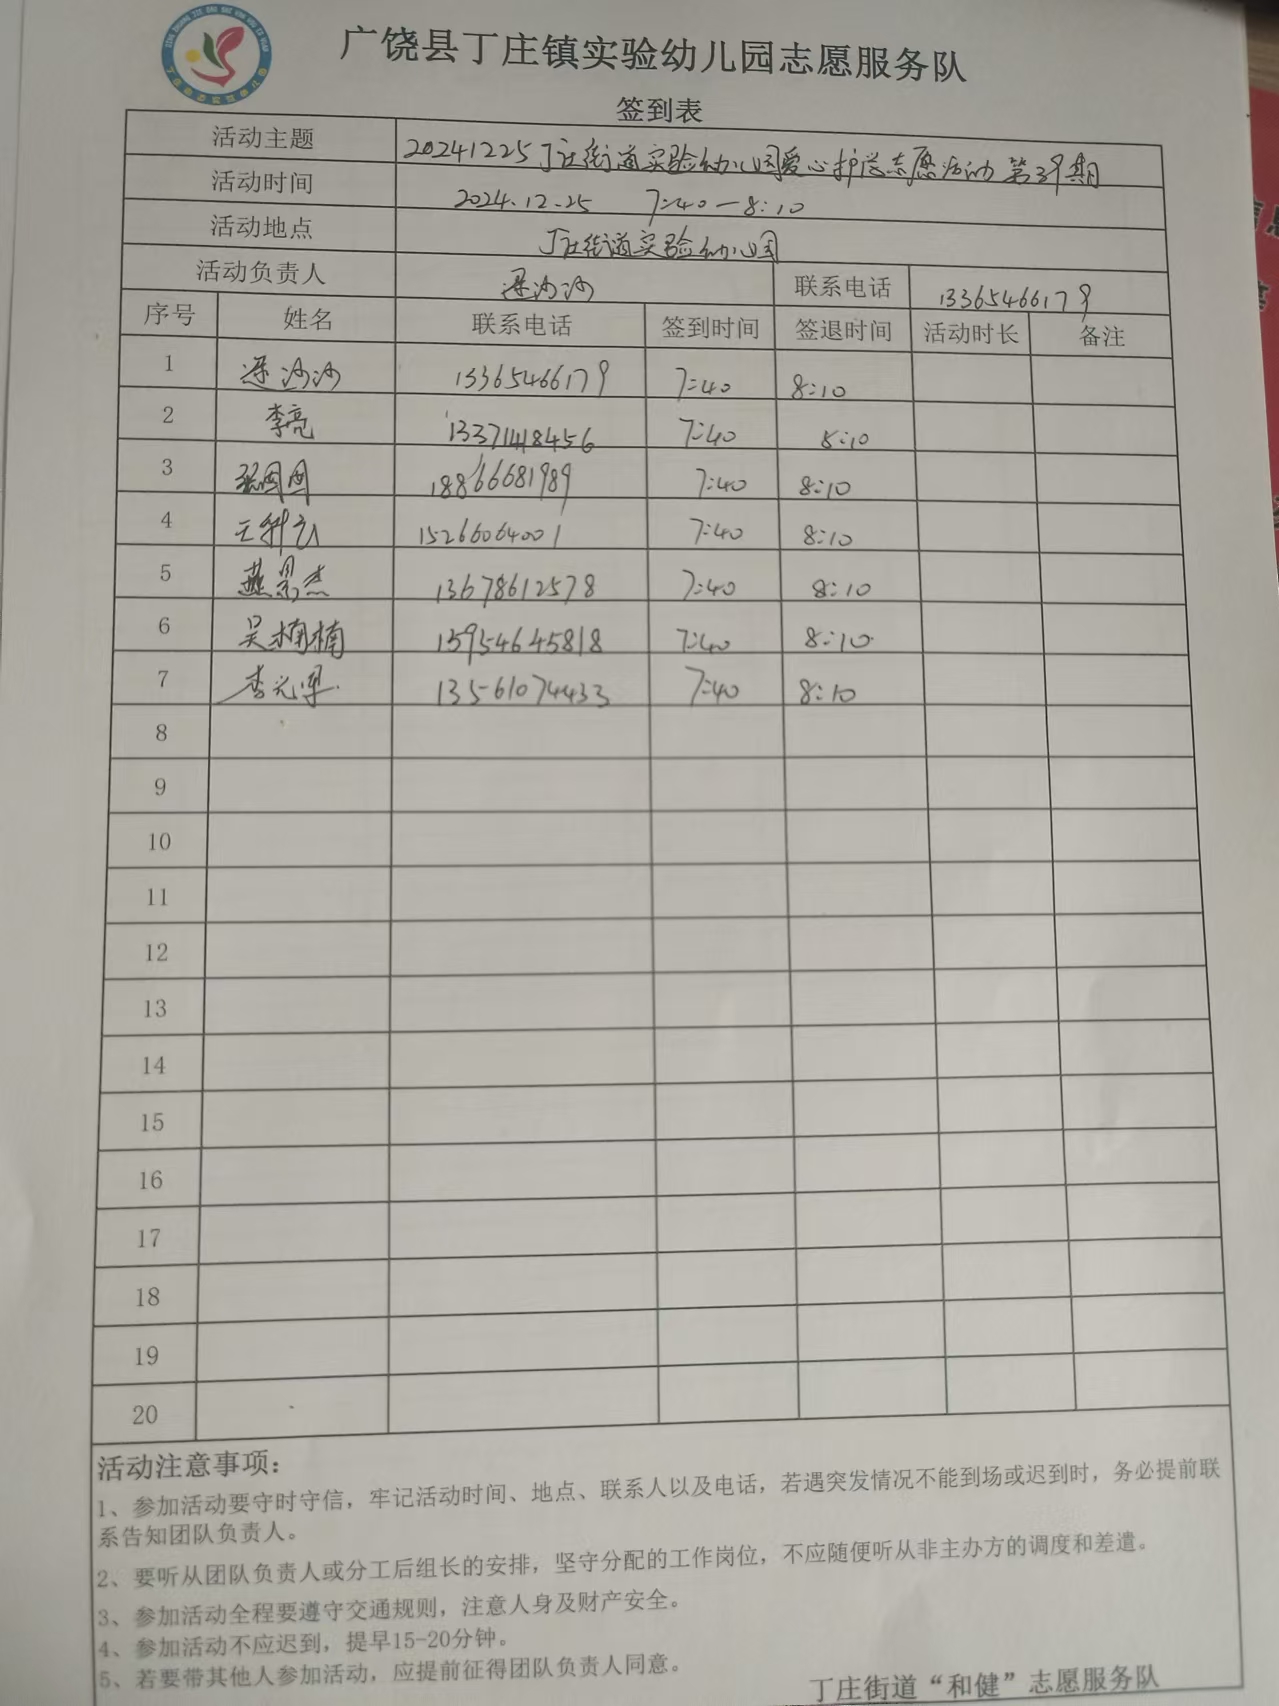 广饶县丁庄镇实验幼儿园志愿服务队
签到表
活动主题 20241225丁庄街道实验幼儿园爱心护学志愿活动第39期
活动时间 2024.12.25 7:40-8:10
活动地点 丁庄街道实验幼儿园
活动负责人 逯沙沙 联系电话 13365466179
序号 姓名 联系电话 签到时间 签退时间 活动时长 备注
1 逯沙沙 13365466179 7:40 8:10
2 李亮 13371418456 7:40 8:10
3 18866681989 7:40 8:10
4 15266064001 7:40 8:10
5 燕景杰 13678612578 7:40 8:10
6 吴楠楠 15954645818 7:40 8:10
7 李光军 13561074433 7:40 8:10
8
9
10
11
12
13
14
15
16
17
18
19
20
活动注意事项：
1、参加活动要守时守信，牢记活动时间、地点、联系人以及电话，若遇突发情况不能到场或迟到时，务必提前联
系告知团队负责人。
2、要听从团队负责人或分工后组长的安排，坚守分配的工作岗位，不应随便听从非主办方的调度和差遣。
3、参加活动全程要遵守交通规则，注意人身及财产安全。
4、参加活动不应迟到，提早15-20分钟。
5、若要带其他人参加活动，应提前征得团队负责人同意。
丁庄街道“和健”志愿服务队